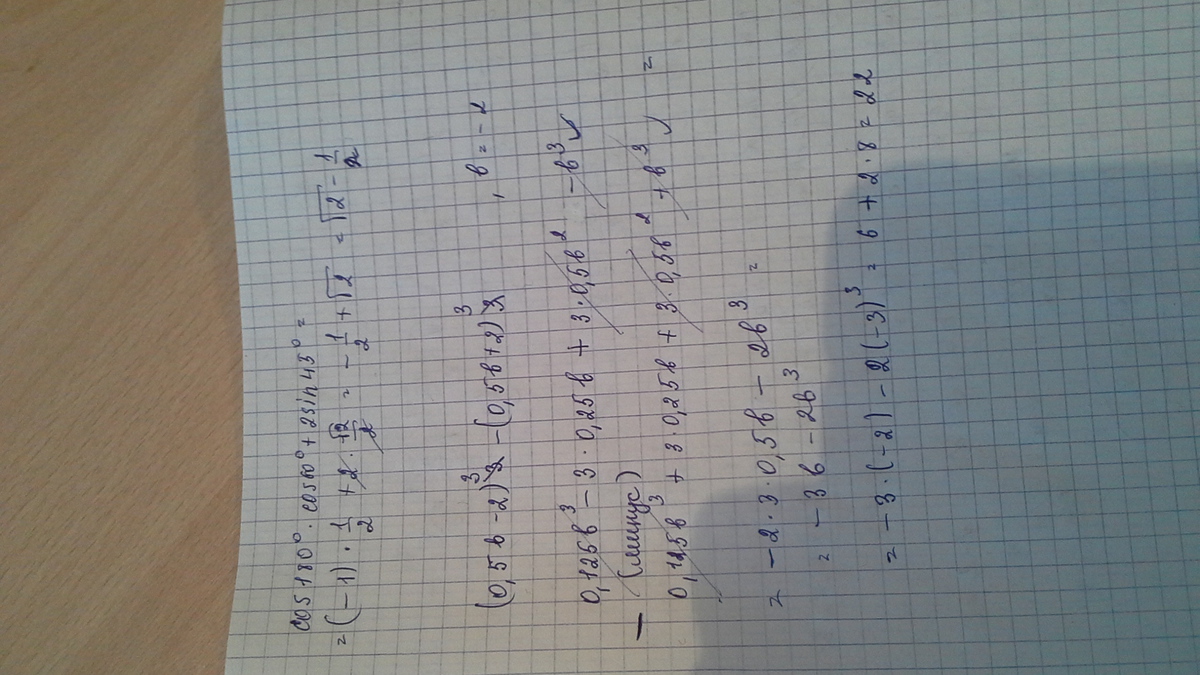 cos180°·cos60°+2sin45°=
=(-1)·1/2+2·√2/2=-1/2+√2=√2-1/2
(0,5в-2)³-(0,5в+2)³, в=-2
0,125в³-3·0,25в+3·0,5в²-в³
- (минус)
0,125в³+3·0,25в+3·0,5в²+в³ =
= -2·3·0,5в-2в³ =
= -3в-2в³
= -3·(-2)-2(-3)³=6+2·8=22